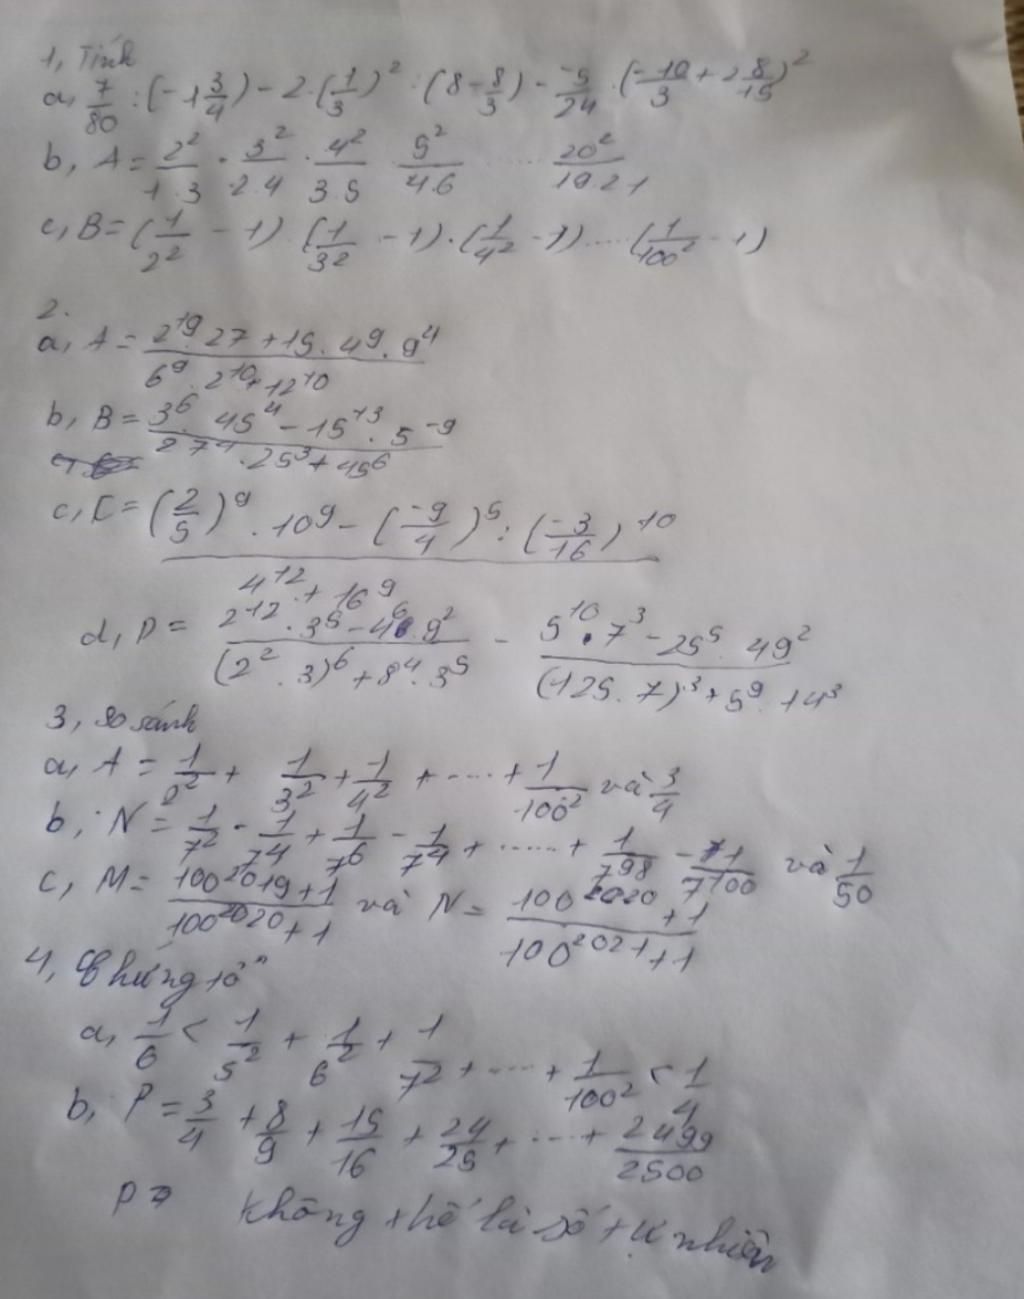 1, Tính
a, 7/80 : (-1 3/4) - 2 · (1/3)² : (8 - 8/3) - -5/24 · (-10/3 + 2 8/15)²
b, A = 2²/1·3 · 3²/2·4 · 4²/3·5 · 5²/4·6 ..... 20²/19·21
c, B = (1/2² - 1) · (1/3² - 1) · (1/4² - 1) .... (1/100² - 1)
2.
a, A = 2¹⁹·27 + 15·4⁹·9⁴ / 6⁹·2¹⁰ + 12¹⁰
b, B = 3⁶·45⁴ - 15¹³·5⁻⁹ / 27⁴·25³ + 45⁶
c, C = (2/5)⁹·10⁹ - (-9/4)⁵ : (-3/16)¹⁰ / 4¹² + 16⁹
d, D = 2¹²·3⁵ - 4⁶·9² / (2²·3)⁶ + 8⁴·3⁵ - 5¹⁰·7³ - 25⁵·49² / (125·7)³ + 5⁹·14³
3, So sánh
a, A = 1/2² + 1/3² + 1/4² + .... + 1/100² và 3/4
b, N = 1/7² - 1/7⁴ + 1/7⁶ - 1/7⁴ + ..... + 1/7⁹⁸ - 1/7¹⁰⁰ và 1/50
c, M = 100²⁰¹⁹ + 1 / 100²⁰²⁰ + 1 và N = 100²⁰²⁰ + 1 / 100²⁰²¹ + 1
4, Chứng tỏ
a, 1/6 < 1/5² + 1/6² + 1/7² + .... + 1/100² < 1/4
b, P = 3/4 + 8/9 + 15/16 + 24/25 + .... + 2499/2500
P không thể là số tự nhiên